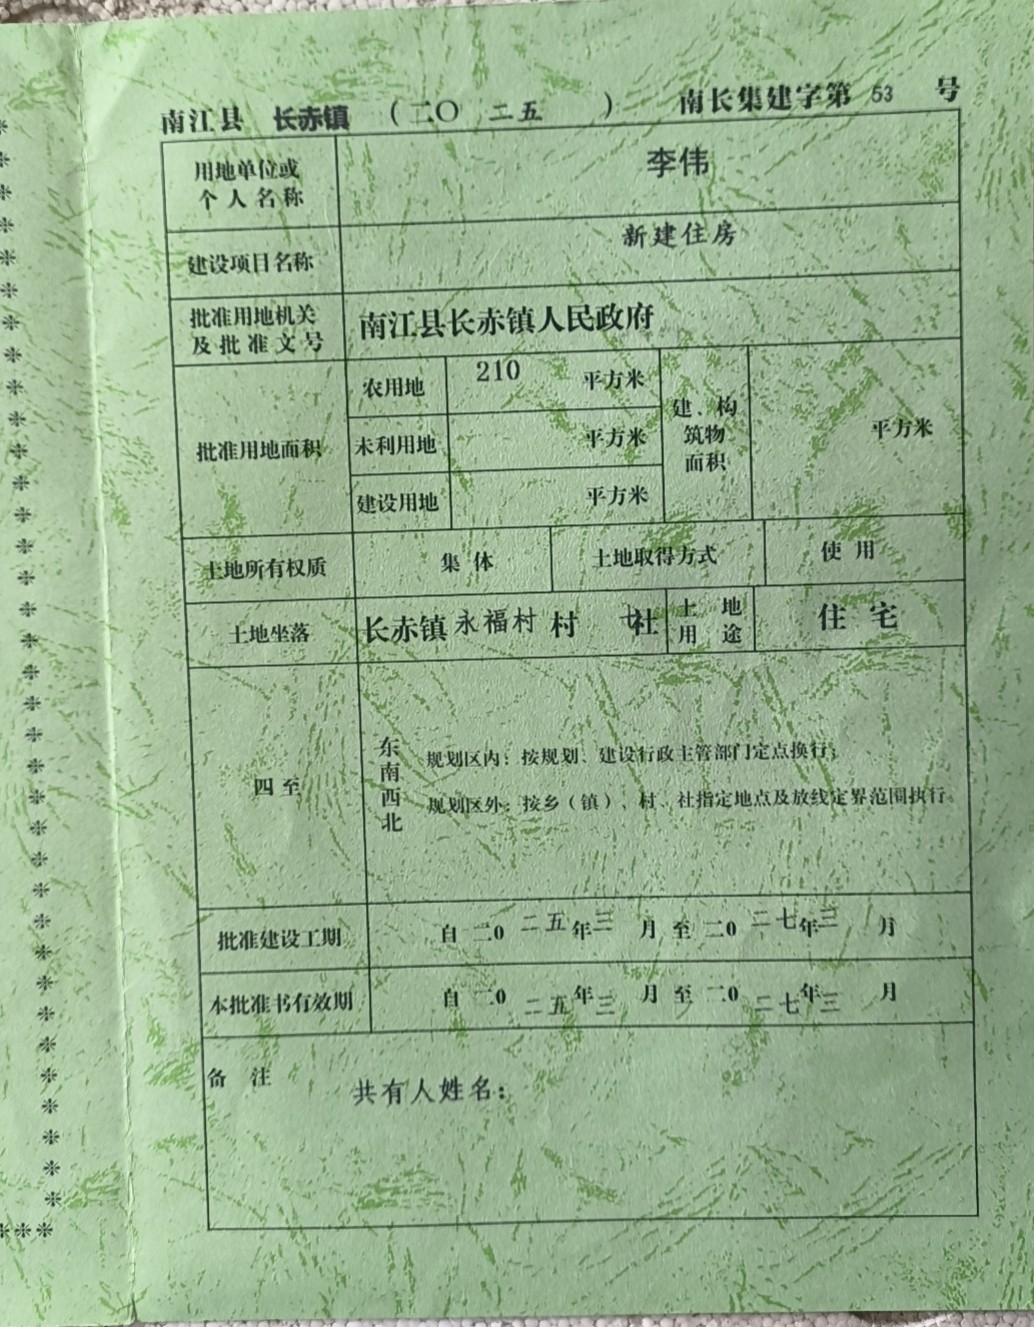 南江县 长赤镇 （二〇 二五 ） 南长集建字第 53 号
用地单位或
个人名称
李伟
建设项目名称
新建住房
批准用地机关
及批准文号
南江县长赤镇人民政府
批准用地面积
农用地 210 平方米
未利用地 平方米
建设用地 平方米
建、构
筑物
面积
平方米
土地所有权质 集体 土地取得方式 使用
土地坐落 长赤镇 永福村 村 七社
土地
用途
住宅
四至
东
南
西
北
规划区内：按规划、建设行政主管部门定点换行；
规划区外：按乡（镇）、村、社指定地点及放线定界范围执行。
批准建设工期 自 二0 二五 年 三 月 至 二0 二七 年 三 月
本批准书有效期 自 二0 二五 年 三 月 至 二0 二七 年 三 月
备注
共有人姓名：